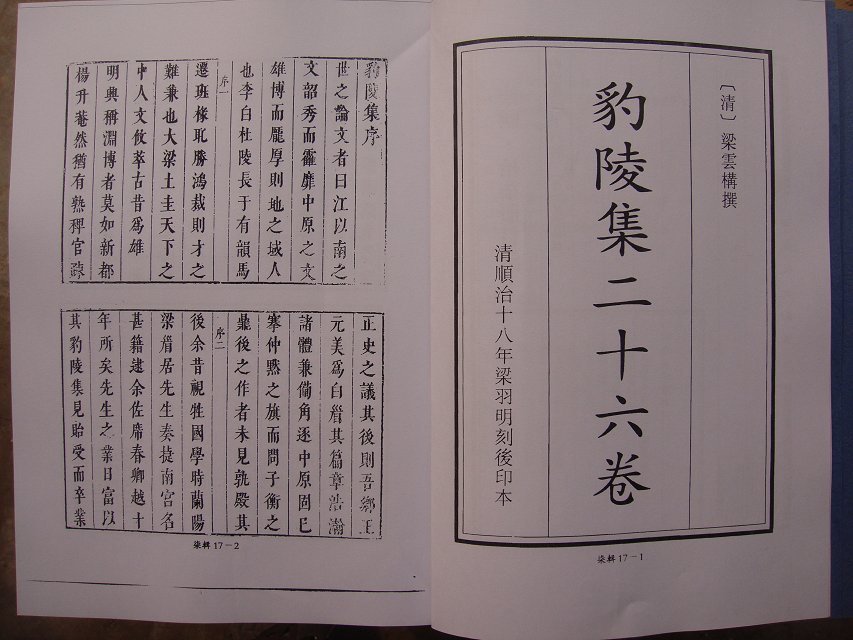 〔清〕梁雲構撰
豹陵集二十六卷
清順治十八年梁羽明刻後印本
柒輯17－1
豹陵集序
世之論文者曰江以南之
文韶秀而靡靡中原之文
雄博而龐厚則地之域人
也李白杜陵長于有韻馬
序一
遷班椽恥勝鴻裁則才之
難兼也大梁土圭天下之
中人文攸萃古昔爲雄
明興稱淵博者莫如新都
楊升菴然猶有熱稗官踈
正史之議其後則吾鄉王
元美爲白眉其篇章浩瀚
諸體兼備角逐中原固已
搴仲黙之旗而問子衡之
鼎後之作者未見孰嚴其
序二
後余昔視牲國學時蘭陽
梁眉居先生奏捷南宮名
甚籍逮余佐席春卿越十
年所矣先生之業日富以
其豹陵集見貽受而卒業
柒輯17－2